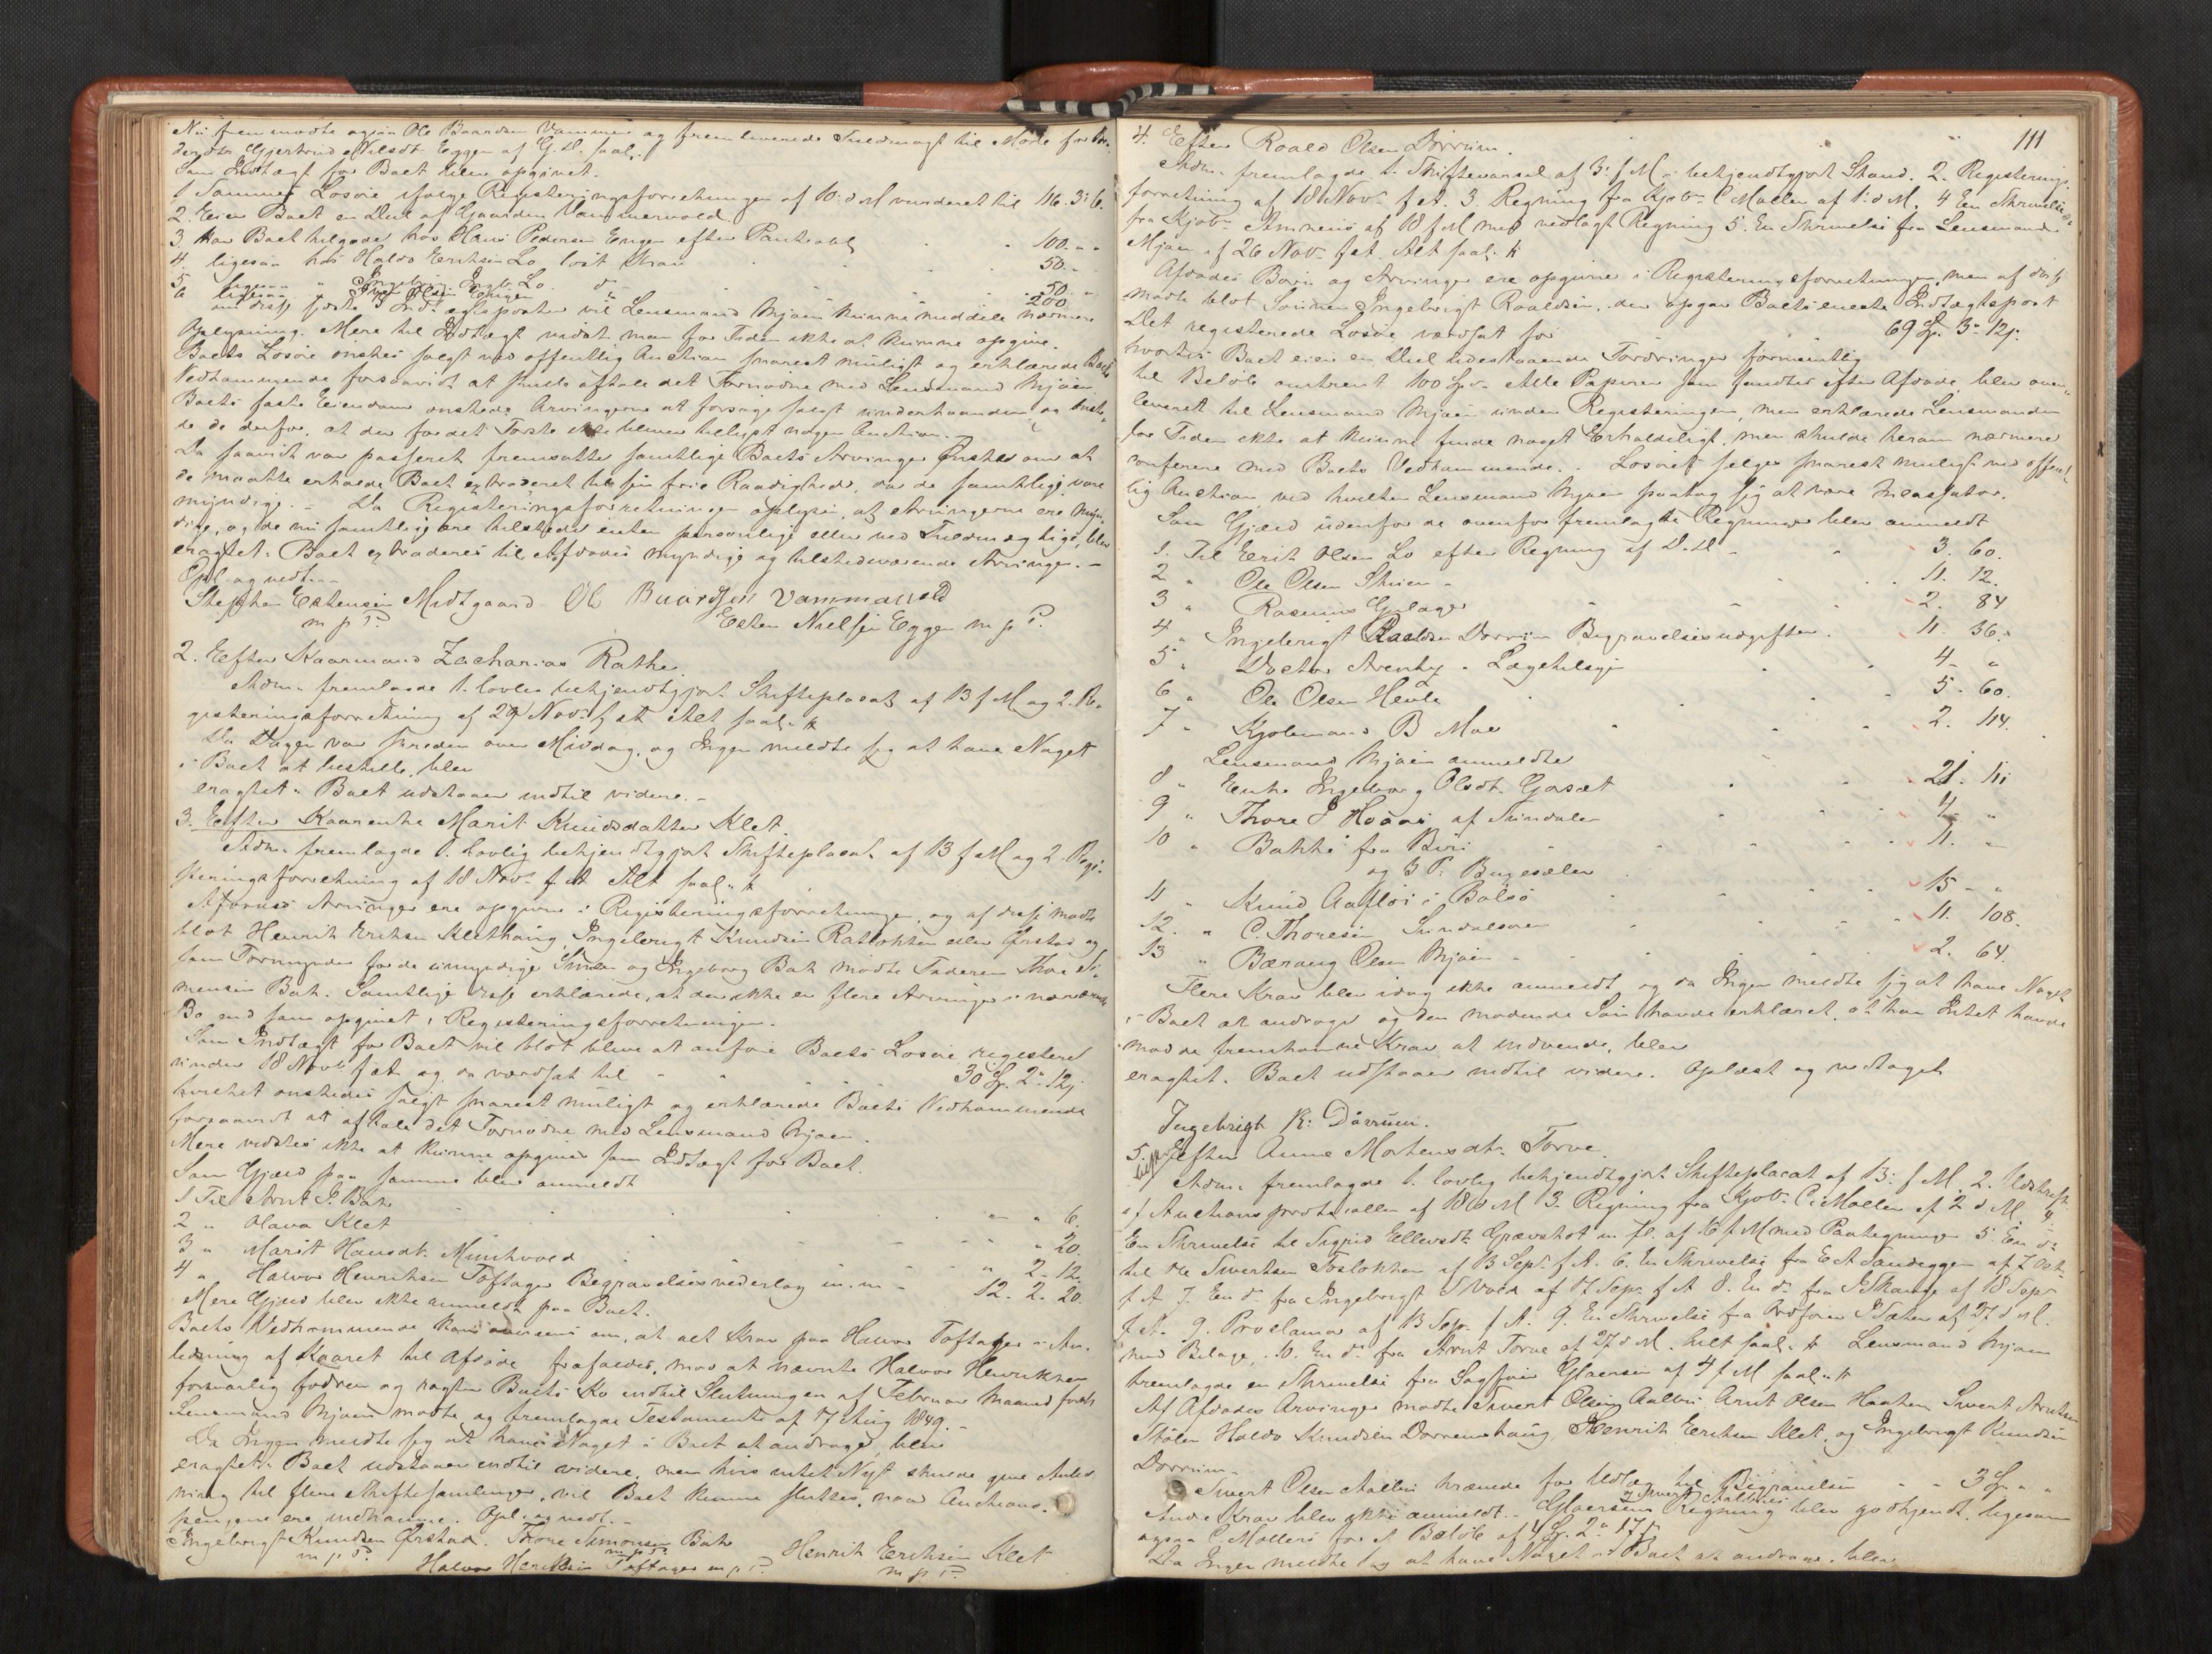 Nu fremmødte ogsaa Ole Baardsen Vammer og fremleverede Fuldmagt til Møde for
Gjertrud Nilsdt. Eggen af G. D. saal.
Som Indtægt for Boet blev opgivet.
1 Sammes Løsøre ifølge Registeringsforretningen af 10. d M vurderet til 116. 3. 6.
2. Eier Boet en Deel af Gaarden Vammervold
3. har Boet tilgode hos Hans Pedersen Engen efter Panteobl. 100. " "
4. ligesaa hos Haldo Erichsen Lo løst Krav 50. "
5. ligesaa " Ingebr. Ingb. Lo do 50. "
6 ligesaa " Iver Olsen Engen " 200
om disse sidste 3 Indtægtsposter vil Lensmand Mjøen kunne meddele nærmere
Oplysning. Mere til Indtægt vidste man for Tiden ikke at kunne opgive.
Boets Løsøre ønskes solgt ved offentlig Auction snarest muligt og erklærede Boets
Vedkommende forsaavidt at skulle aftale det Fornødne med Lensmand Mjøen
Boets faste Eiendom ønskede Arvingerne at forsøge solgt underhaanden og ønske-
de de derfor, at der for det Første ikke blev belyst nogen Auction.
Da saavidt var passeret fremsatte samtlige Boets Arvinger Ønsket om at
de maatte erholde Boet extraderet til sin frie Raadighed, da de samtlige vare
myndige. - Da Registeringsforretningen oplyser, at Arvingerne ere myn-
dige, og de nu samtlige ere tilstede enten personlige eller ved Fuldmægtige, blev
eragtet: Boet extraderes til Afdødes myndige og tilstedeværende Arvinger. -
Opl. og vedt. -
Stephen Estensen Midtgaard Ole Baardsen Vammervold
m p P. Esten Nielsen Eggen m p P.
2. Efter Kaarmand Zacharias Rathe
Adm. fremlagde 1. lovlig bekjendtgjort Skifteplacat af 13 f M og 2. Re-
gisteringsforretning af 29 Nov. f A. Alt saal.
Da Dagen var skreden over Middag, og Ingen meldte sig at have Noget
i Boet at bestille, blev
eragtet: Boet udstaaer indtil videre. -
3. Efter Kaarenke Marit Knudsdatter Klet.
Adm. fremlagde 1. lovlig bekjendtgjort Skifteplacat af 13 f M og 2. Regi-
steringsforretning af 18 Nov. f A. Alt saal.
Afdødes Arvinger ere opgivne i Registeringsforretningen, og af disse mødte
blot Henrik Erichsen Klethaug, Ingebrigt Knudsen Ratløkken eller Ørstad og
som Formynder for de umyndige Simen og Ingeborg Bak mødte Faderen Thore Si-
monsen Bak. Samtlige disse erklærede, at der ikke er flere Arvinger i nærværende
Bo end som opgivet i Registeringsforretningen.
Som Indtægt for Boet vil blot blive at anføre Boets Løsøre registeret
under 18 Nov. f A. og da værdsat til 30 Sp. 2. 12 s
hvilket ønskedes solgt snarest muligt og erklærede Boets Vedkommende
forsaavidt at aftale det Fornødne med Lensmand Mjøen.
Mere vidstes ikke at kunne opgives som Indtægt for Boet.
Som Gjæld paa samme blev anmeldt
1 Til Arnt S. Bak " " 6.
2 " Olava Klet " " 20.
3 " Marit Hansdt. " 2 - 12.
4 " Halvor Henriksen Toftager Begravelsesvederlag m. m 12. 2. 20.
Mere Gjæld blev ikke anmeldt paa Boet.
Boets Vedkommende kom overens om, at alt Krav paa Halvor Toftager i An-
ledning af Kaaret til Afdøde frafaldes, mod at nævnte Halvor Henriksen
forsvarlig fødrer og røgter Boets Ko indtil Slutningen af Februar Maaned førstk.
Lensmand Mjøen mødte og fremlagde Testamente af 7 Aug 1849. -
Da Ingen meldte sig at have Noget i Boet at andrage, blev
eragtet: Boet udstaaer indtil videre, men hvis intet Nyt skulde give Anled-
ning til flere Skiftesamlinger, vil Boet kunne sluttes, naar Auctions-
pengene ere indkomne. Opl. og vedt. -
Ingebrigt Knudsen Ørstad. Thore Simonsen Bak Henrik Erichsen Klet
m p P. m p P. Halvor Henriksen Toftager m p P. m p P.
111
4. Efter Roald Olsen Dørrum.
Adm. fremlagde 1. Skiftevarsel af 3. f M i bekjendtgjort Stand. 2. Registerings-
forretning af 18 Nov. f A. 3. Regning fra Kjøb. C Møller af 1. d M. 4 En Skrivelse
fra Kjøb. af 18 f M med vedlagt Regning 5. En Skrivelse fra Lensmand
Mjøen af 26 Nov. f A. Alt saal.
Afdødes Børn og Arvinger ere opgivne i Registeringsforretningen, men af disse
mødte blot Sønnen Ingebrigt Roaldsen, der opgav Boets eneste Indtægtspost
Det registerede Løsøre værdsat for 69 Sp. 3. 12 s.
hvorhos Boet eier en Deel udestaaende Fordringer formentlig
til Beløb omtrent 100 Spd. Alle Papirer som fandtes efter Afdøde, blev over-
leveret til Lensmand Mjøen under Registeringen, men erklærede Lensmanden
for Tiden ikke at kunne finde noget Erholdeligt, men skulde herom nærmere
conferere med Boets Vedkommende. - Løsøret sælges snarest muligt ved offent-
lig Auction, ved hvilken Lensmand Mjøen paatog sig at være Incassator.
Som Gjæld udenfor de ovenfor fremlagte Regninger blev anmeldt
1. Til Erik Olsen Lo efter Regning af D. D. - 3. 60.
2 " Ole Olsen Skrien - 11. 12.
3 " Rasmus 2. 84
4 " Ingebrigt Roaldsen Dørrum Begravelsesudgifter. 11. 36.
5 " Doctor Arentz - Lægetilsyn 4 - "
6 " Ole Olsen Hevle 5 - 60.
7 " Kjøbmand B Moe 2. 114.
Lensmand Mjøen anmeldte
8 " Enke Ingeborg Olsdt. Gorsæt 21. 111
9 " Thore J Hoaas af Sundalen 4 - "
10 " Bakke fra Biri 11. "
og 3 P.
11 " Knud Aafløi i Bolsø 15 - "
12. " C. Thoresen Sundalsøren 11. 108.
13 " Bæraug Olsen Mjøen - 2. 64.
Flere Krav blev idag ikke anmeldt og da Ingen meldte sig at have Noget
i Boet at andrage og den mødende Søn havde erklæret, at han Intet havde
mod de fremkomne Krav at indvende, blev
eragtet: Boet udstaaer indtil videre. Oplæst og vedtaget
Ingebrigt R: Dörrum.
5. Efter Anne Mortensdt. Torve.
Adm. fremlagde 1. lovlig bekjendtgjort Skifteplacat af 13. f M. 2. Udskrift
af Auctionsprotocollen af 18 d M 3. Regning fra Kjøb. C. Møller af 2 d M 4.
En Skrivelse til Sigrid Ellevsdt. m fl. af 16 f M med Paategninger 5. En do
til Ole Sivertsen af 13 Sept. f A. 6. En Skrivelse fra E A Sandeggen af 7 Oct.
f A 7. En do. fra Ingebrigt af 17 Sept. f A 8. En do. fra af 18 Sept.
f A. 9. Proclama af 13 Sep. f A. 9. En Skrivelse fra Ordfører af 27 d M.
med Bilage, 10. En do. fra Arnt Torve af 27 d M. Alt saal. Lensmand Mjøen
fremlagde en Skrivelse fra Sagfører Gløersen af 4 f M saal.
Af Afdødes Arvinger mødte Sivert Olsen Aalbu Arnt Olsen Haaken, Sivert Arntsen
Stølen Haldo Knudsen Dørremshaug Henrik Erichsen Klet, og Ingebrigt Knudsen
Dørrum. -
Sivert Olsen Aalbu krævede for Udlæg til Begravelsen 3 Sp. " "
Andre Krav blev ikke anmeldt. - Gløersens og Sivert Aalbus Regning blev godkjendt, ligesom
ogsaa C. Møllers for et Beløb af 4 Sp. 2. 17 s
Da Ingen meldte sig at have Noget i Boet at andrage, blev